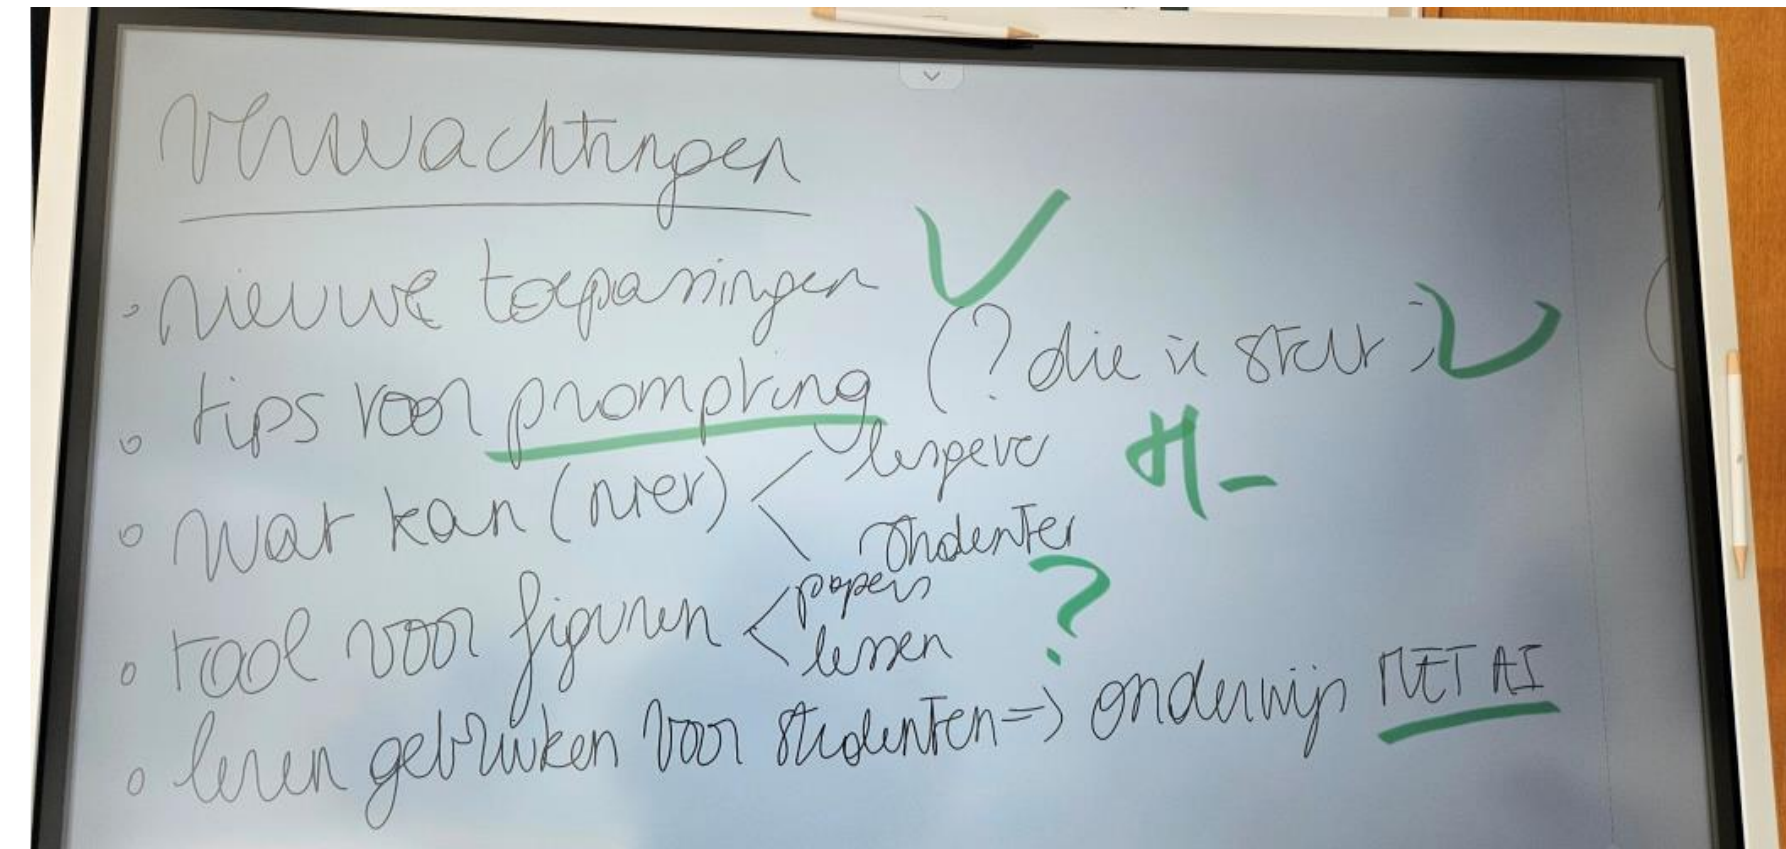 Verwachtingen
• nieuwe toepassingen
• tips voor prompting (? die je stelt)
• wat kan (niet) < lesgever
studenten
+/-
• tool voor figuren < papers
lessen
?
• leren gebruiken voor studenten => onderwijs MET AI